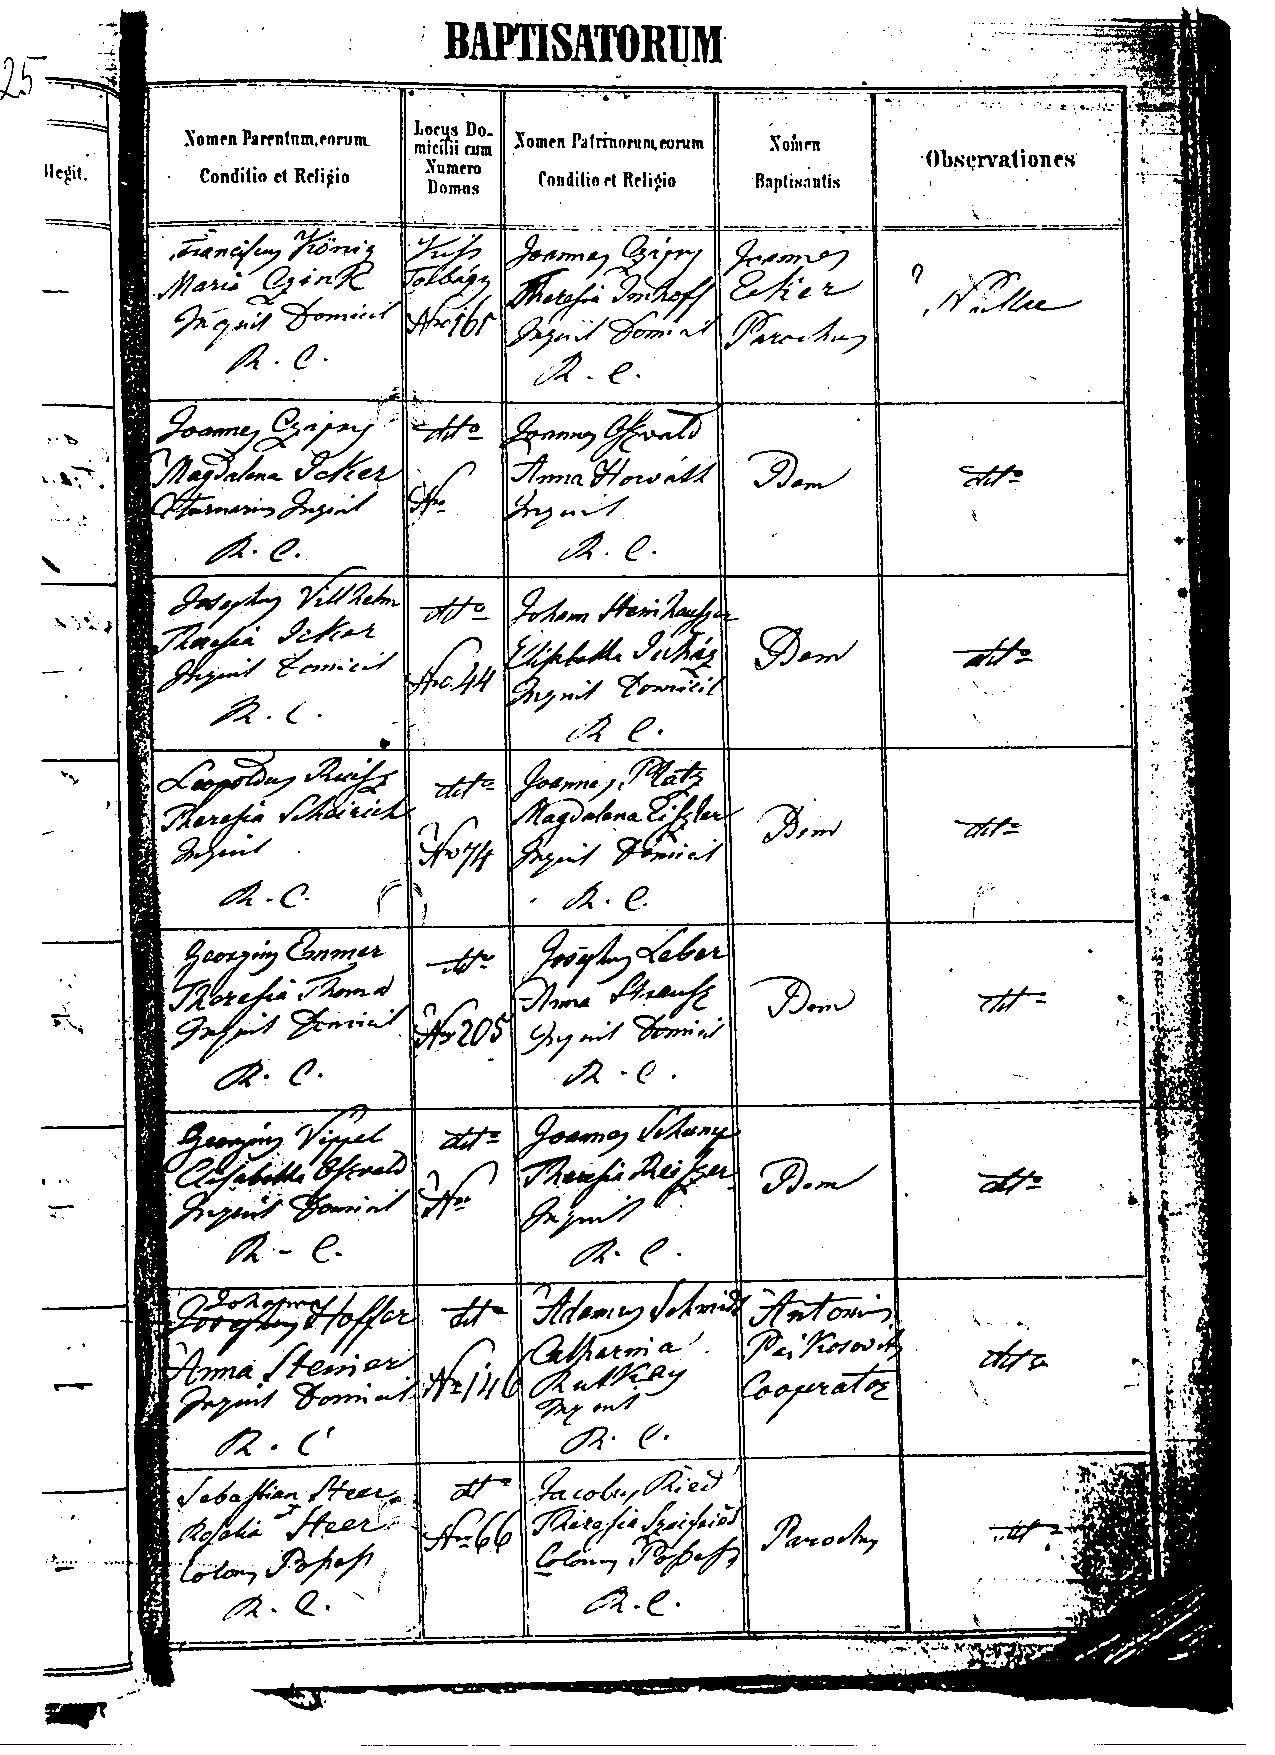 25
BAPTISATORUM
Illegit.
Nomen Parentum, eorum
Conditio et Religio
Locus Do-
micilii cum
Numero
Domus
Nomen Patrinorum, eorum
Conditio et Religio
Nomen
Baptisantis
Observationes
Franciscus König
Maria Czink
Inquil Domicil
R. C.
Kis
Torbágy
Nro 161
Joannes Czipry
Theresia Imhoff
Inquil Domicil
R. C.
Joannes
Ecker
Parochus
Nullae
Joannes Czipry
Magdalena Icker
Inquil
R. C.
dtto
Nro
Joannes Oswald
Anna Horváth
Inquil
R. C.
Dem
dtto
Josephus Villhelm
Theresia Icker
Inquil Domicil
R. C.
dtto
Nro 44
Johann Steinhauszer
Elisabetha Juház
Inquil Domicil
R. C.
Dem
dtto
Leopoldus Reisz
Theresia Scheirich
Inquil
R. C.
dtto
Nro 74
Joannes Platz
Magdalena Eiszler
Inquil Domicil
R. C.
Dem
dtto
Georgius Emmer
Theresia Thoma
Inquil Domicil
R. C.
dtto
Nro 205
Josephus Leber
Anna Strausz
Inquil Domicil
R. C.
Dem
dtto
Georgius Vippel
Elisabetha Oswald
Inquil Domicil
R. C.
dtto
Nro
Joannes
Theresia Reiszer
Inquil
R. C.
Dem
dtto
Johannes
Josephus Hoffer
Anna Steiner
Inquil Domicil
R. C
dtto
Nro 146
Adamus Schmidt
Catharina
Rutkay
Inquil
R. C.
Antonius
Paikosovits
Cooperator
dtto
Sebastian Steer
Rosalia Steer
Colonus Possess
R. C.
dtto
Nro 66
Jacobus Ried
Theresia
Colonus Possess
R. C.
Parochus
dtto